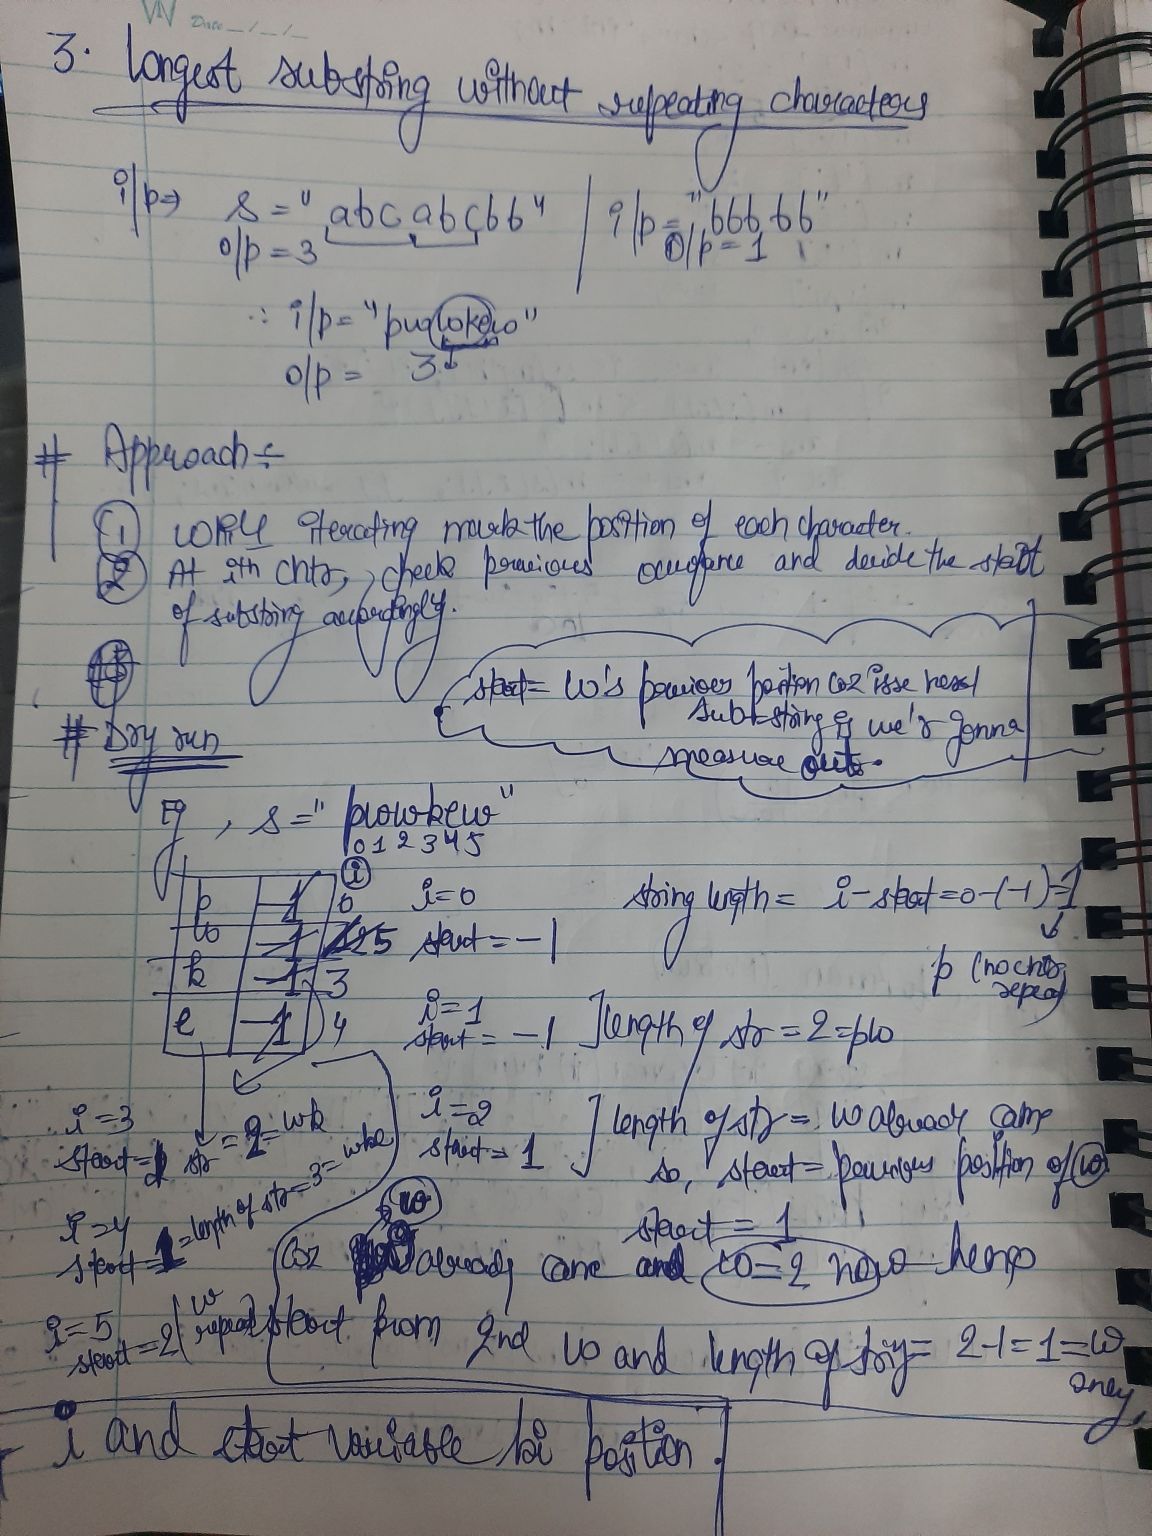 VN Date __/__/__
3. Longest substring without repeating characters
i/p⇒ s = "abcabcbb" | i/p = "bbbbb"
o/p = 3 o/p = 1
∴ i/p = "pwwkew"
o/p = 3
# Approach ÷
① While iterating mark the position of each character.
② At ith chtr, check previous and decide the start
of substring accordingly.
start = w's previous position coz isse next
substring if we'r gonna
measure out.
# Dry run
Eg, s = "pwwkew"
0 1 2 3 4 5
i
p -1 0 i=0 string length = i - start = 0-(-1) = 1
w -1 1 2 5 start = -1
k -1 3 p (no chtr
repeat
e -1 4 i=1
start = -1 ] length of str = 2 = pw
i=3
start = 1 str = 2 = wk
i=2
start = 1 ] length of str = w already came
so, start = previous position of w
start = 1
i=4
start = 1 = length of str = 3 = wke
Coz w already came and w=2 now hence
i=5
start = 2 ( w
repeat
start from 2nd w and length of = 2-1 = 1 = w
only
i and start variable ki position.